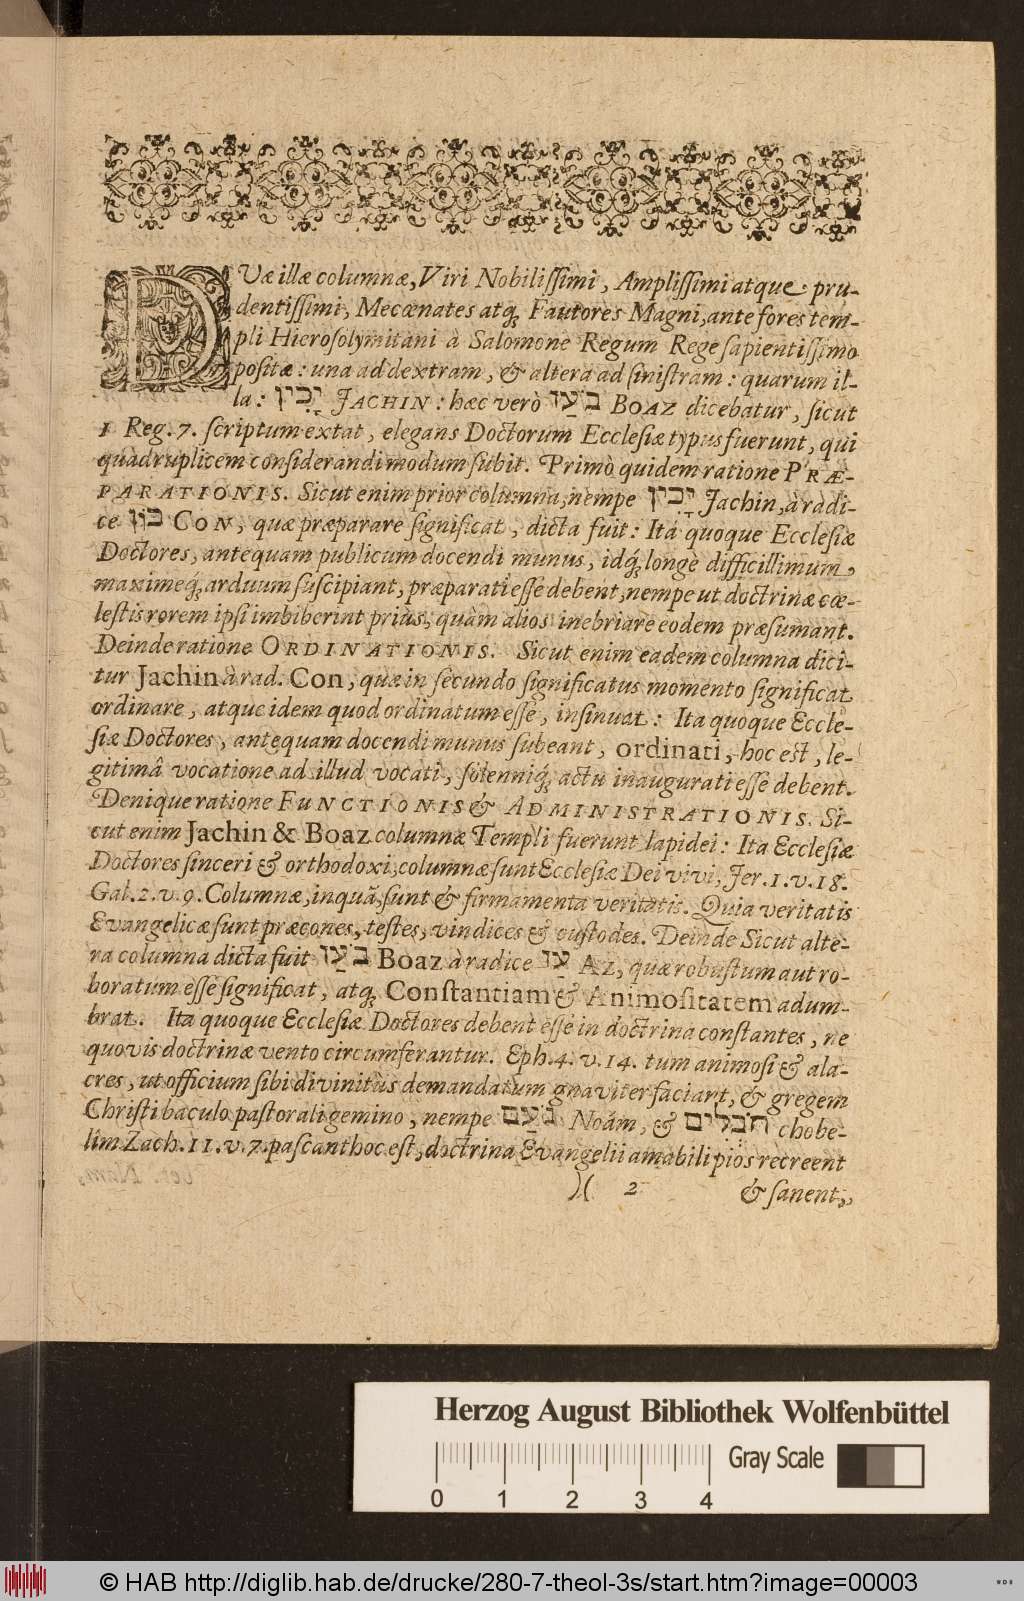 DUæ illæ columnæ, Viri Nobilissimi, Amplissimi atque pru-
dentissimi, Mecœnates atq; Fautores Magni, ante fores tem-
pli Hierosolymitani à Salomone Regum Rege sapientissimo
positæ: una ad dextram, & altera ad sinistram: quarum il-
la: יָכִין JACHIN: hæc verò בֹּעַז BOAZ dicebatur, sicut
1 Reg. 7. scriptum extat, elegans Doctorum Ecclesiæ typus fuerunt, qui
quadruplicem considerandi modum subit. Primò quidem ratione PRÆ-
PARATIONIS. Sicut enim prior columna, nempe יָכִין Jachin, à radi-
ce כּוּן CON, quæ præparare significat, dicta fuit: Ita quoque Ecclesiæ
Doctores, antequam publicum docendi munus, idq; longè difficillimum,
maximeq; arduum suscipiant, præparati esse debent, nempe ut doctrinæ cœ-
lestis rorem ipsi imbiberint priùs, quàm alios inebriare eodem præsumant.
Deinde ratione ORDINATIONIS. Sicut enim eadem columna dici-
tur Jachin à rad. Con, quæ in secundo significatus momento significat
ordinare, atque idem quod ordinatum esse, insinuat: Ita quoque Eccle-
siæ Doctores, antequam docendi munus subeant, ordinati, hoc est, le-
gitimâ vocatione ad illud vocati, solenniq; actu inaugurati esse debent.
Denique ratione FUNCTIONIS & ADMINISTRATIONIS. Si-
cut enim Jachin & Boaz columnæ Templi fuerunt lapidei: Ita Ecclesiæ
Doctores sinceri & orthodoxi, columnæ sunt Ecclesiæ Dei vivi, Jer. 1. v. 18.
Gal. 2. v. 9. Columnæ, inquã, sunt & firmamenta veritatis. Quia veritatis
Evangelicæ sunt præcones, testes, vindices & custodes. Deinde Sicut alte-
ra columna dicta fuit בֹּעַז Boaz à radice עַז AZ, quæ robustum aut ro-
boratum esse significat, atq; Constantiam & Animositatem adum-
brat. Ita quoque Ecclesiæ Doctores debent esse in doctrina constantes, ne
quovis doctrinæ vento circumferantur. Eph. 4. v. 14. tum animosi & ala-
cres, ut officium sibi divinitùs demandatum gnaviter faciant, & gregem
Christi baculo pastorali gemino, nempe נֹעַם Noám, & חֹבְלִים chobe-
lîm Zach. 11. v. 7. pascant hoc est, doctrina Evangelii amabili pios recreent
)( 2 & sanent,
Herzog August Bibliothek Wolfenbüttel
Gray Scale
0 1 2 3 4
© HAB http://diglib.hab.de/drucke/280-7-theol-3s/start.htm?image=00003